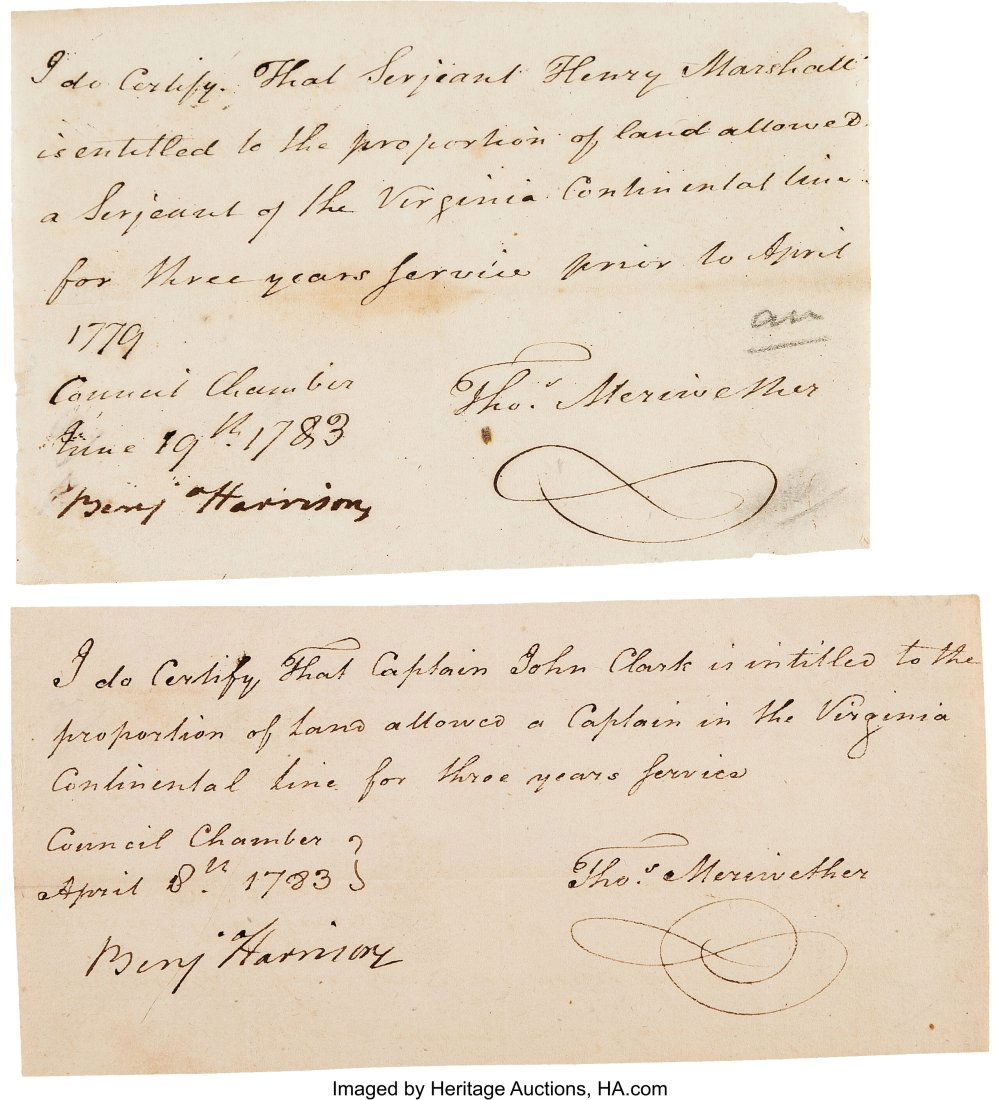 I do Certify. That Serjeant Henry Marshall
is entitled to the proportion of land allowed
a Serjeant of the Virginia Continental line
for three years service prior to April
1779
Council Chamber
June 19th. 1783
Thos. Meriwether
Benj Harrison
I do Certify, That Captain John Clark is intitled to the
proportion of Land allowed a Captain in the Virginia
Continental Line for three years service
Council Chamber
April 8th. 1783
Thos. Meriwether
Benj Harrison
Imaged by Heritage Auctions, HA.com